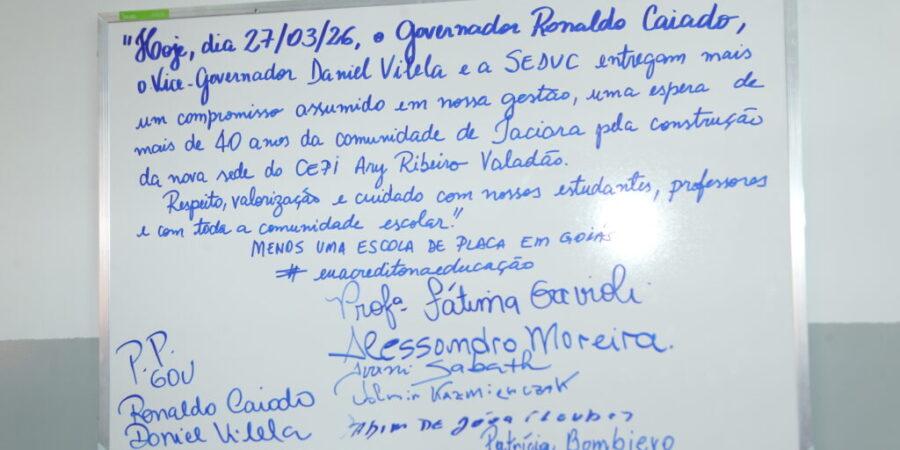 "Hoje, dia 27/03/26, o Governador Ronaldo Caiado,
o Vice-Governador Daniel Vilela e a SEDUC entregam mais
um compromisso assumido em nossa gestão, uma espera de
mais de 40 anos da comunidade de Jaciara pela construção
da nova sede do CEPI Ary Ribeiro Valadão.
Respeito, valorização e cuidado com nossos estudantes, professores
e com toda a comunidade escolar."
MENOS UMA ESCOLA DE PLACA EM GOIÁS
#euacreditonaeducação
Profª Fátima Gavioli
Alessandro Moreira.
Sabath
Kazmienczak
P.P.
GOV
Ronaldo Caiado
Daniel Vilela
DE
Patrícia Bombiero